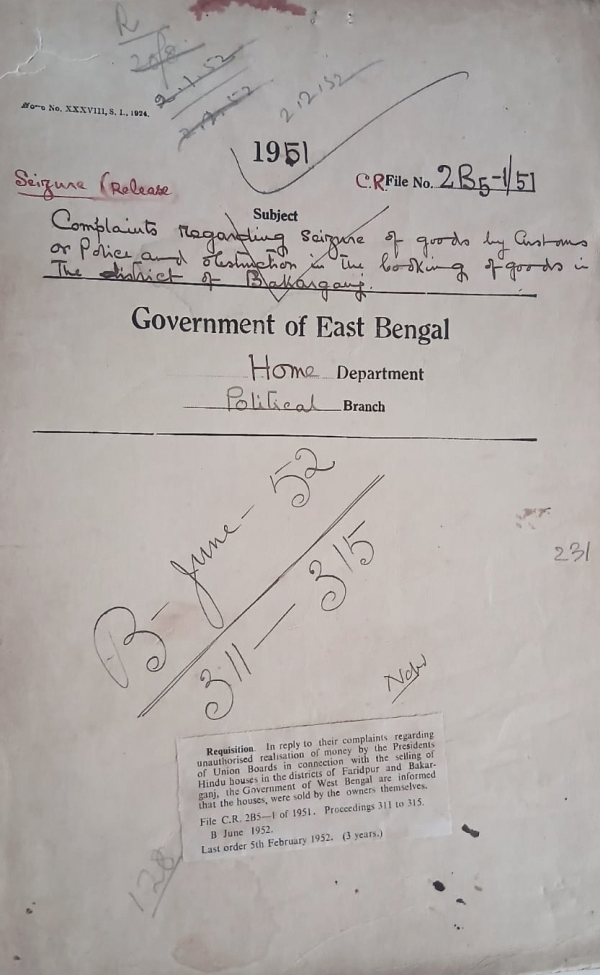 R
20/8
2.1.52
2.12.52
No. XXXVIII, S. I., 1924.
1951
Seizure (Release
C.R. File No. 2B5-1/51
Subject
Complaints regarding seizure of goods by Customs
or Police and obstruction in the booking of goods in
The district of Bakarganj.
Government of East Bengal
Home Department
Political Branch
B- June - 52
311 - 315
231
Requisition. In reply to their complaints regarding
unauthorised realisation of money by the Presidents
of Union Boards in connection with the selling of
Hindu houses in the districts of Faridpur and Bakar-
ganj, the Government of West Bengal are informed
that the houses, were sold by the owners themselves.
File C.R. 2B5—1 of 1951. Proceedings 311 to 315.
B June 1952.
Last order 5th February 1952. (3 years.)
128